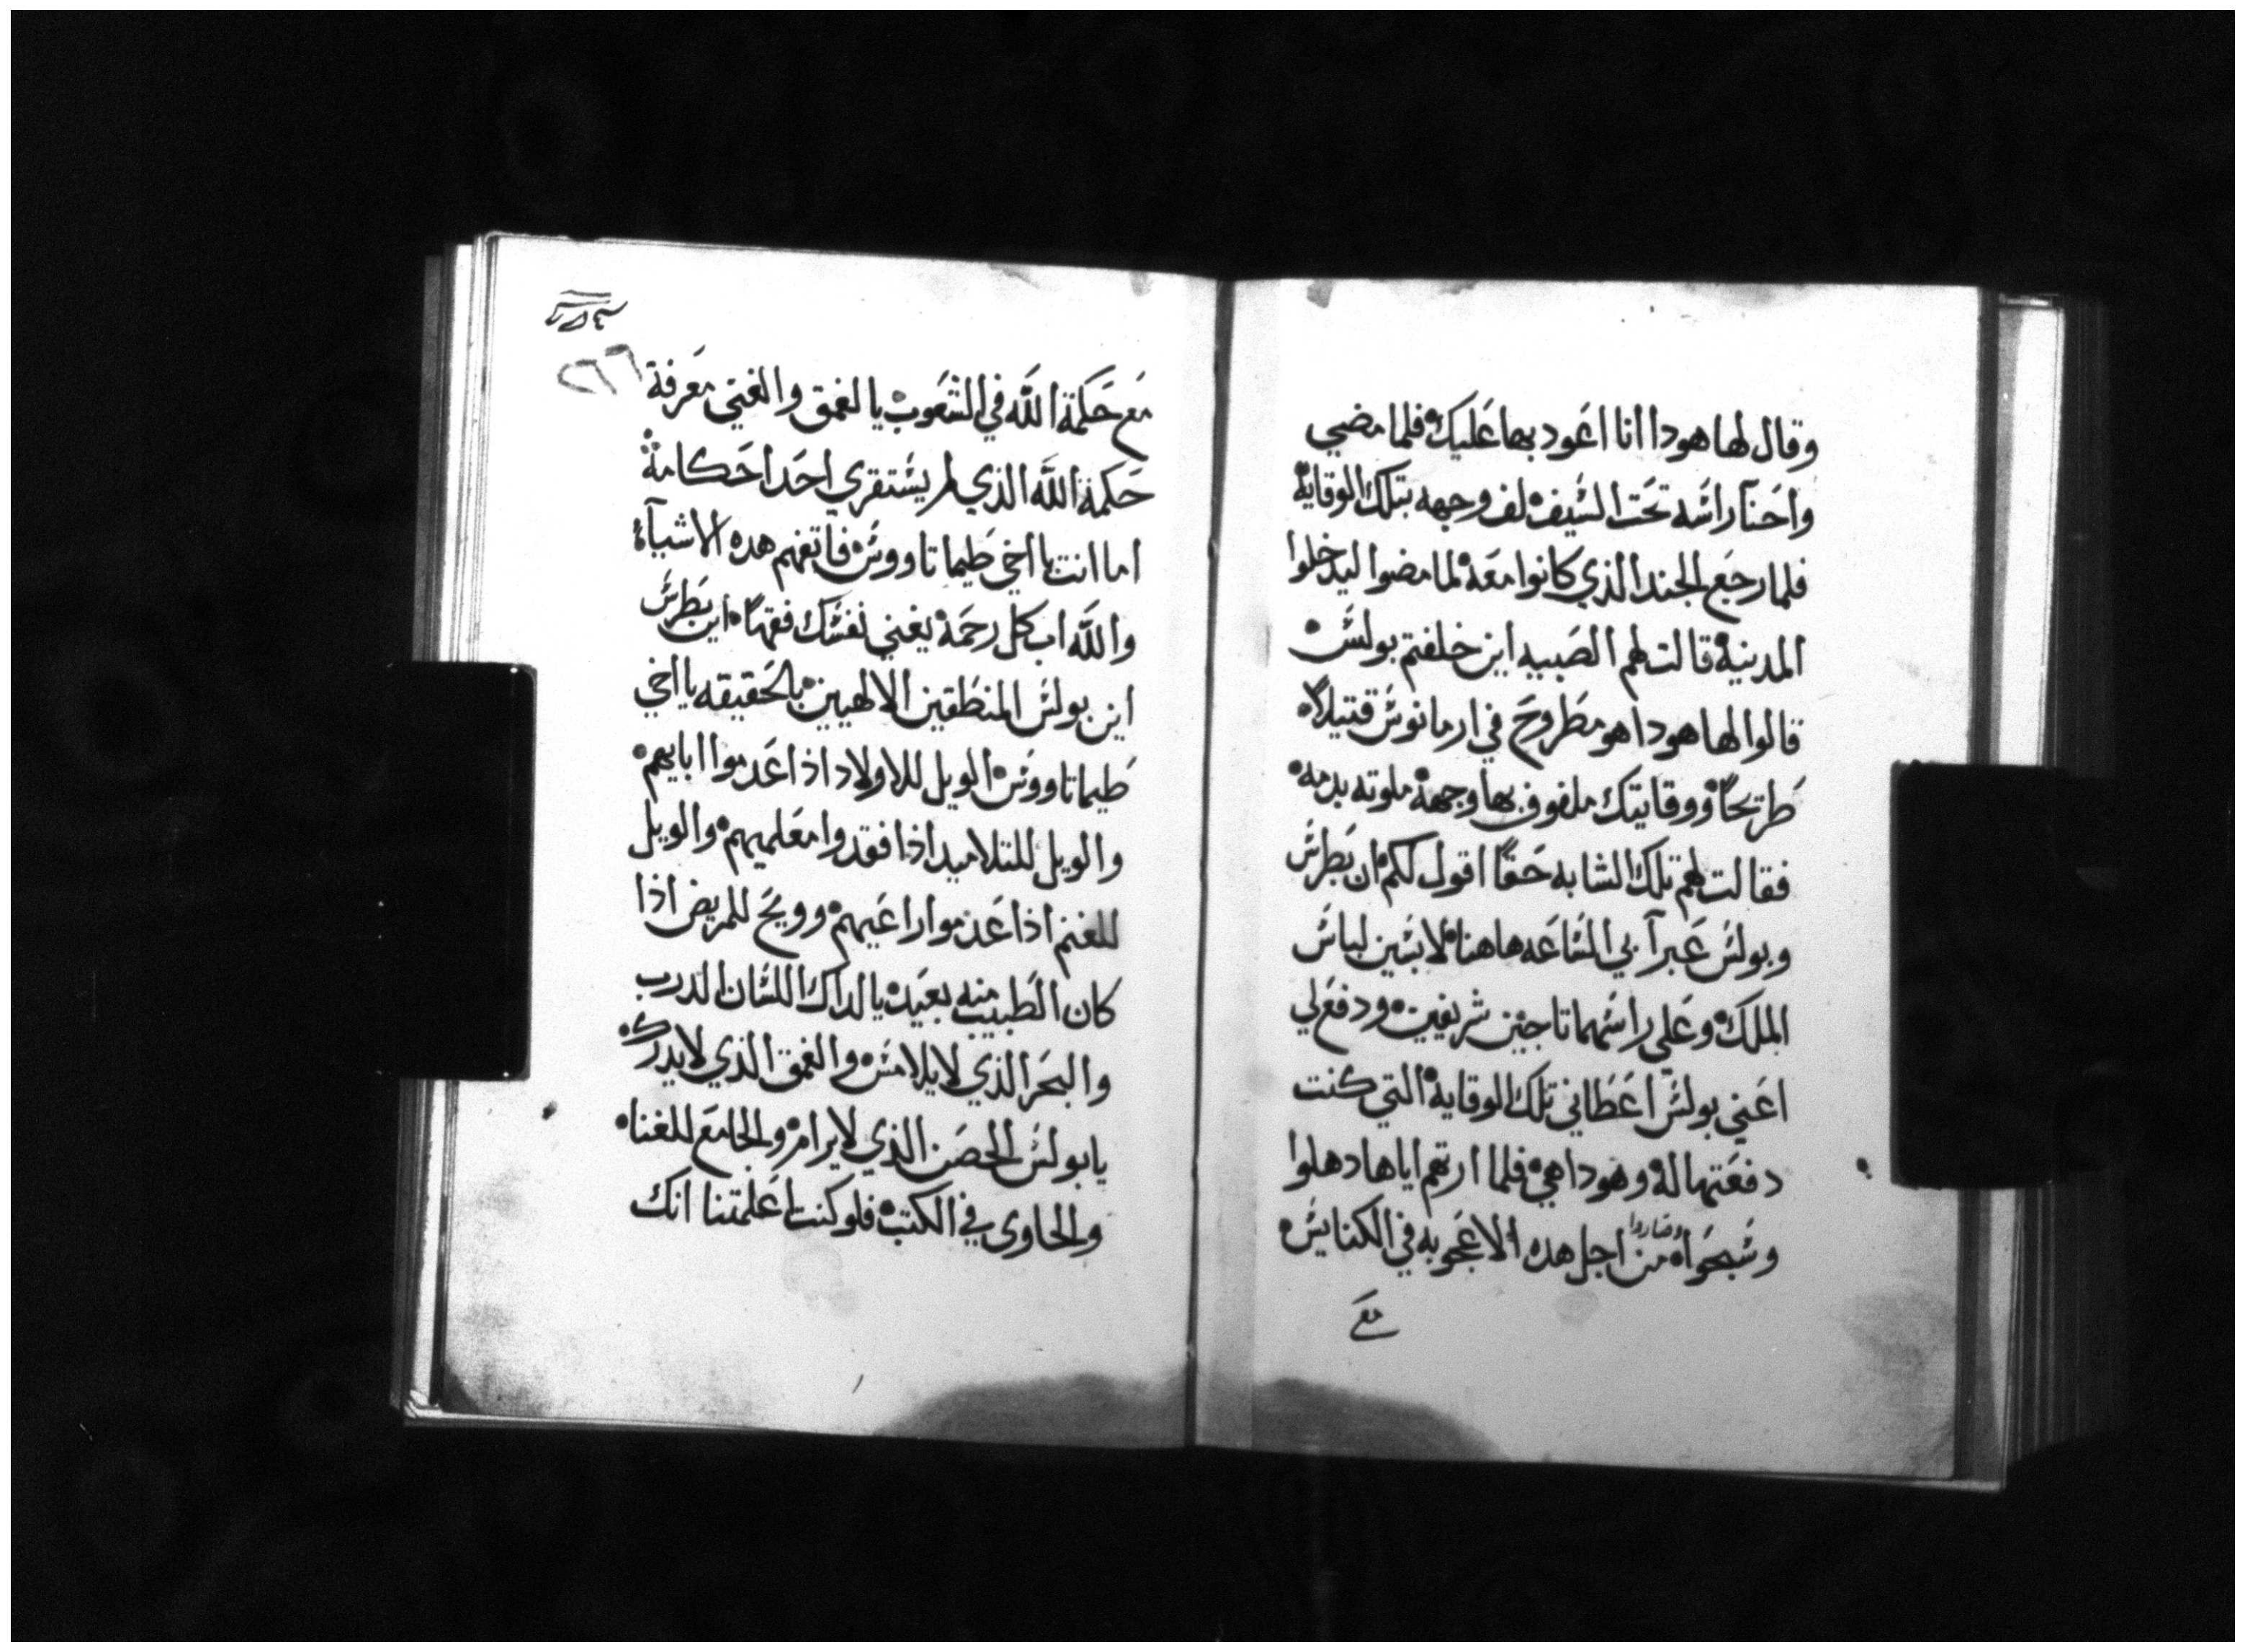 وقال لها هودا انا اعود بها عليك فلما مضي
واحنا راسه تحت السيف لف وجهه بتلك الوقاية
فلما رجع الجند الذي كانوا معه لما مضوا ليدخلوا
المدينة قالت لهم الصبيه اين خلفتم بولس
قالوا لها هودا هو مطروح في ارمانوس قتيلاً
طريحاً ووقايتك ملفوف بها وجهه ملوته بدمه
فقالت لهم تلك الشابه حقاً اقول لكم ان بطرس
وبولس عبرآ بي الساعه هاهنا لابسين لباس
الملك وعلي راسهما تاجين شريفين ودفع لي
اعني بولس اعطاني تلك الوقاية التي كنت
دفعتها له وهودا هي فلما ارتهم اياها دهلوا
وسبحوا وصاروا من اجل هده الاعجوبه في الكنايس
مع
مع حكمة الله في الشعوب يالغمق والغني معرفة
حكمة الله الذي لم يستقري احدا حكامة
اما انت يااخي طيماتاووس فاتفهم هده الاشيآء
والله اب كل رحمة يغني نفسك فقهاً اين بطرس
اين بولس المنطقين الالهيين بالحقيقه يااخي
طيماتاووس الويل للاولاد اذا عدموا ابايهم
والويل للتلاميد اذا فقدوا معلميهم والويل
للغنم اذا عدموا راعيهم وويح للمريض اذا
كان الطبيب منه بعيد يالداك اللسان الدرب
والبحر الذي لايلامس والغمق الذي لايدركه
يابولس الحصن الذي لايرام والجامع للغناه
والحاوى في الكتب فلو كنت اعلمتنا انك